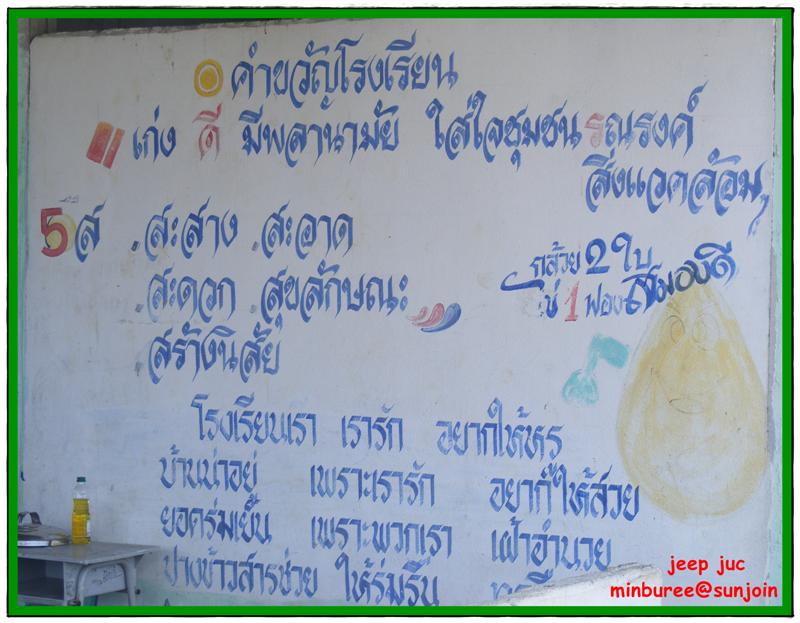 คำขวัญโรงเรียน
เก่ง ดี มีพลานามัย ใส่ใจชุมชน รณรงค์
สิ่งแวดล้อม
5 ส สะสาง สะอาด
สะดวก สุขลักษณะ
สร้างนิสัย
กล้วย 2 ใบ
ไข่ 1 ฟอง สมองดี
โรงเรียนเรา เรารัก อยากให้หรู
บ้านน่าอยู่ เพราะเรารัก อยากให้สวย
ยอดร่มเย็น เพราะพวกเรา เฝ้าอำนวย
ปางข้าวสารช่วย ให้ร่มรื่น
jeep juc
minburee@sunjoin